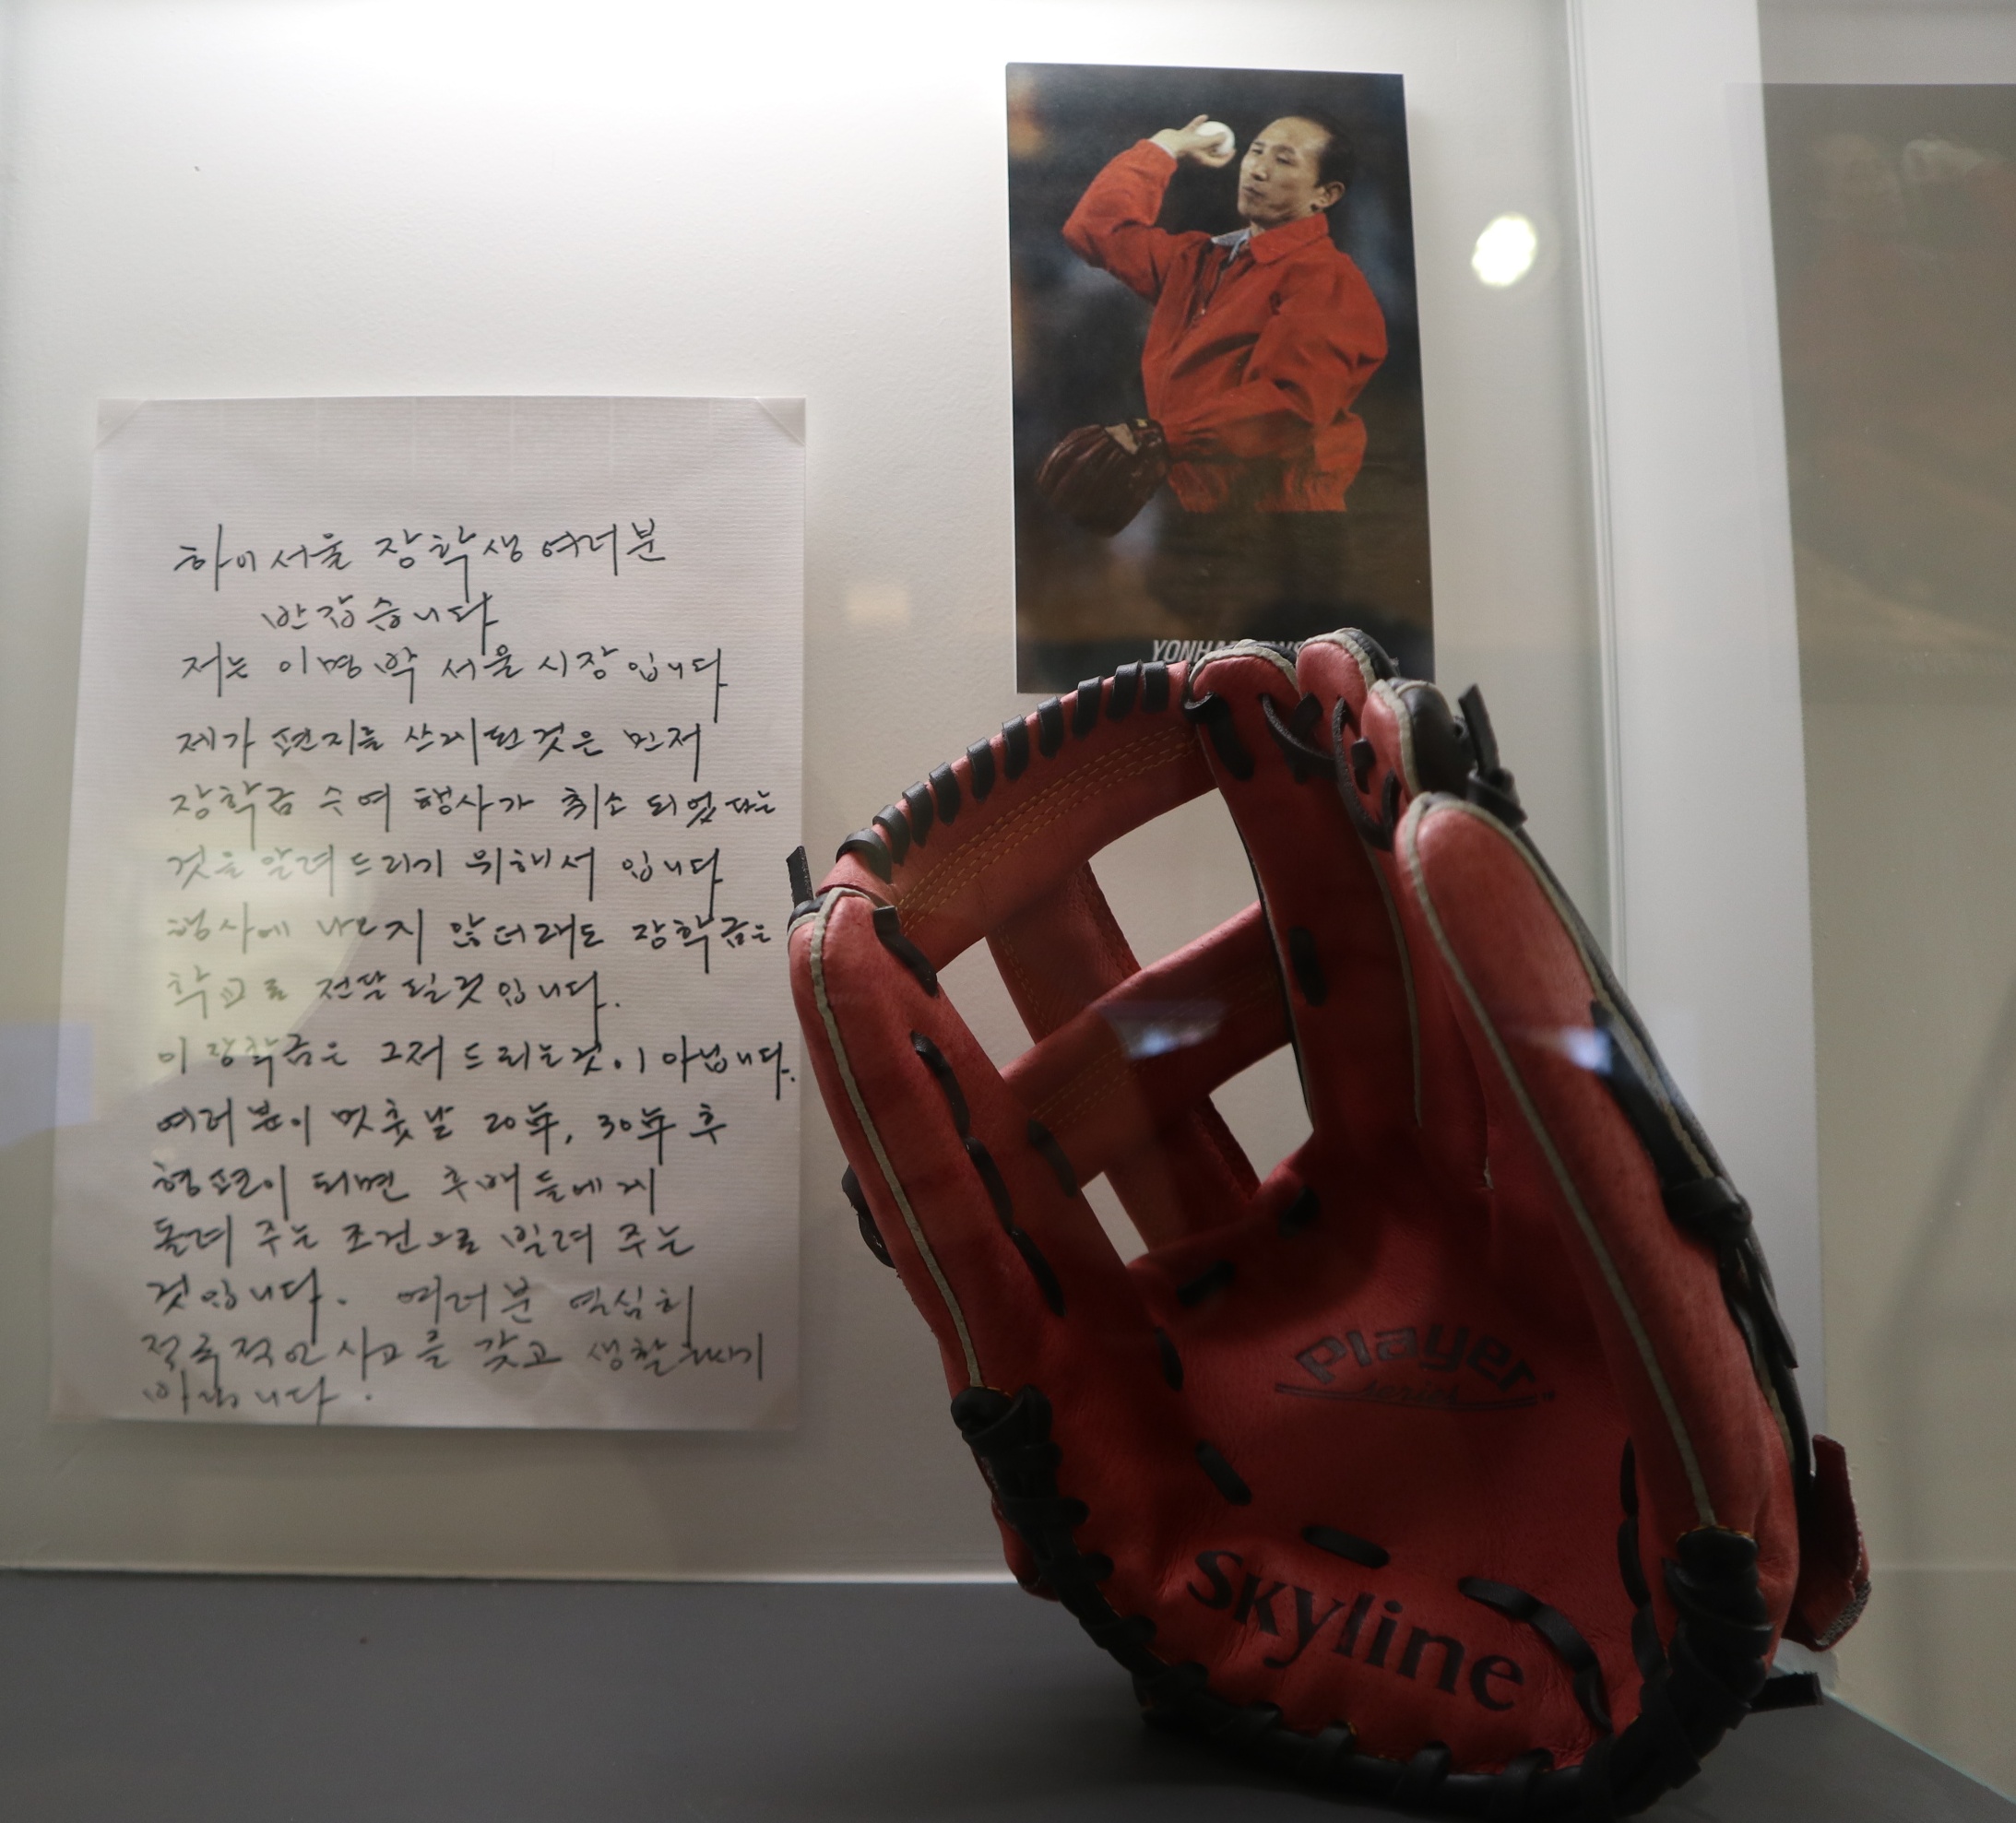 하이서울 장학생 여러분
반갑습니다
저는 이명박 서울시장입니다
제가 편지를 쓰게된것은 먼저
장학금 수여 행사가 취소 되었다는
것을 알려드리기 위해서 입니다
행사에 나오지 않더래도 장학금은
학교로 전달 될것입니다.
이 장학금은 그저 드리는것이 아닙니다.
여러분이 멋훗날 20年, 30年 후
형편이 되면 후배들에게
돌려 주는 조건으로 빌려 주는
것입니다. 여러분 열심히
적극적인 사고를 갖고 생활하시기
바랍니다.
Player
series
Skyline